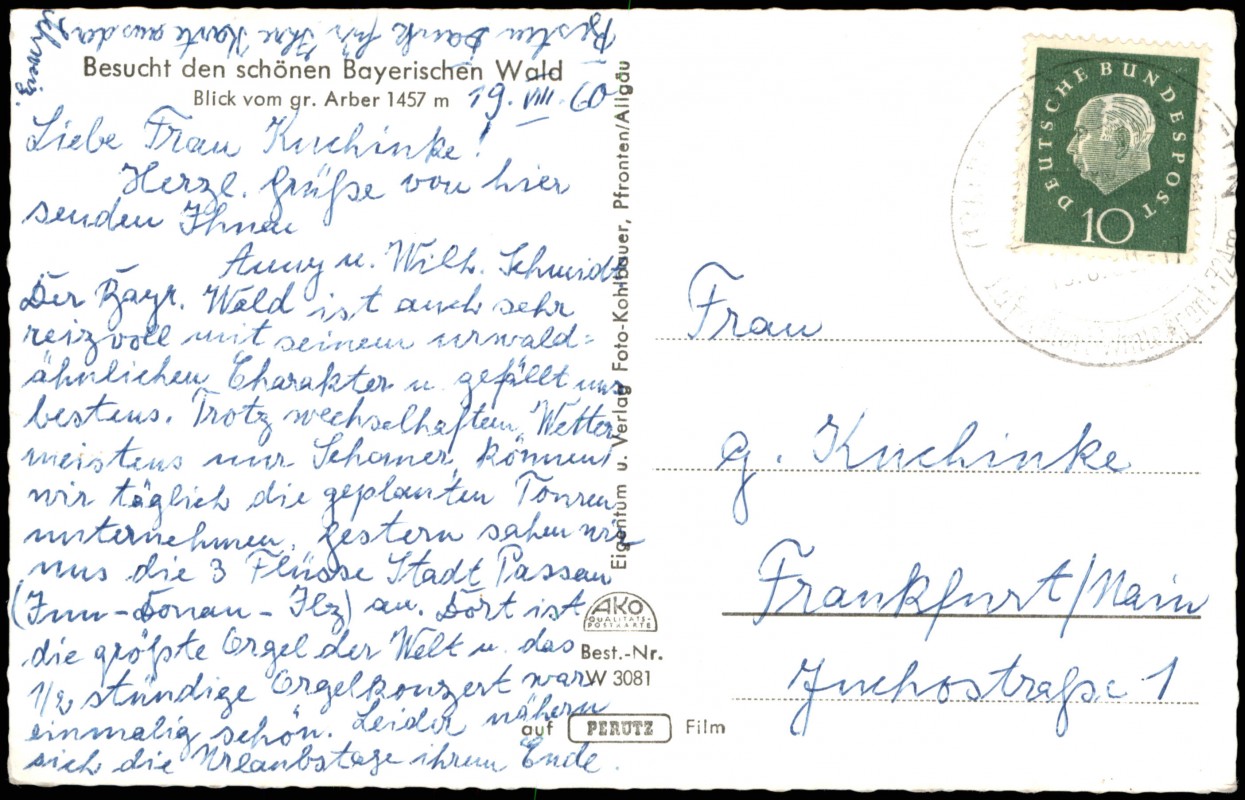 Besten Dank für Ihre Karte aus der
Schweiz.
Besucht den schönen Bayerischen Wald
Blick vom gr. Arber 1457 m
19. VIII. 60
Liebe Frau Kuchinke!
Herzl. Grüße von hier
senden Ihnen
Anny u. Wilh. Schmidt
Der Bayr. Wald ist auch sehr
reizvoll mit seinem urwald=
ähnlichen Charakter u. gefällt uns
bestens. Trotz wechselhaftem Wetter,
meistens nur Schauer, können
wir täglich die geplanten Touren
unternehmen, gestern sahen wir
uns die 3 Flüsse Stadt Passau
(Inn-Donau-Ilz) an. Dort ist
die größte Orgel der Welt u. das
1/2 stündige Orgelkonzert war
einmalig schön. Leider nähern
sich die Urlaubstage ihrem Ende.
Eigentum u. Verlag Foto-Kohlbauer, Pfronten/Allgäu
AKO
QUALITÄTS-
POSTKARTE
Best.-Nr.
W 3081
auf PERUTZ Film
DEUTSCHE BUNDESPOST
10
Frau
G. Kuchinke
Frankfurt/Main
Juchostraße 1